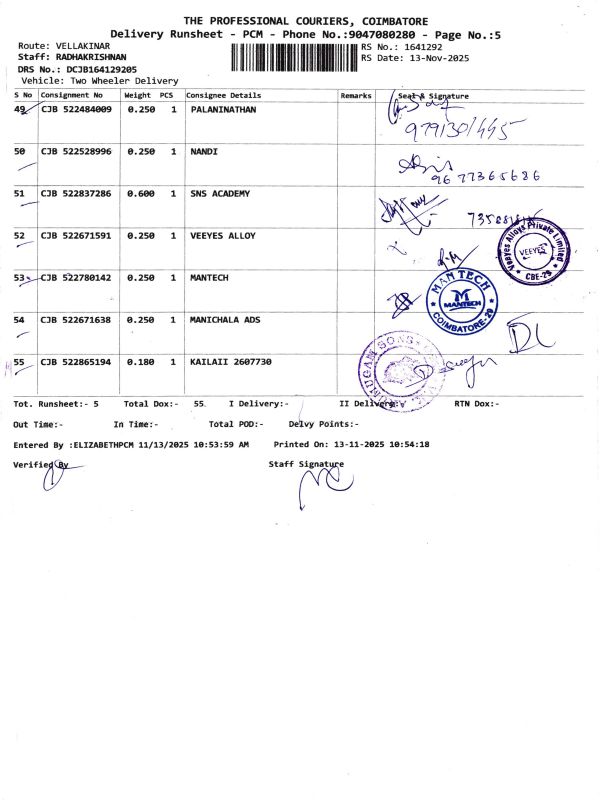 THE PROFESSIONAL COURIERS, COIMBATORE
Delivery Runsheet - PCM - Phone No.:9047080280 - Page No.:5
Route: VELLAKINAR
RS No.: 1641292
Staff: RADHAKRISHNAN
RS Date: 13-Nov-2025
DRS No.: DCJB164129205
Vehicle: Two Wheeler Delivery
S No Consignment No Weight PCS Consignee Details Remarks Seal & Signature
49 CJB 522484009 0.250 1 PALANINATHAN
50 CJB 522528996 0.250 1 NANDI
9677365686
51 CJB 522837286 0.600 1 SNS ACADEMY
52 CJB 522671591 0.250 1 VEEYES ALLOY
Veeyes Alloys Private Limited
VEEYES
* CBE-29 *
53 CJB 522780142 0.250 1 MANTECH
MAN TECH
MANTECH
COIMBATORE-29
54 CJB 522671638 0.250 1 MANICHALA ADS
55 CJB 522865194 0.180 1 KAILAII 2607730
Tot. Runsheet:- 5 Total Dox:- 55. I Delivery:- II Delivery:- RTN Dox:-
Out Time:- In Time:- Total POD:- Delvy Points:-
Entered By :ELIZABETHPCM 11/13/2025 10:53:59 AM Printed On: 13-11-2025 10:54:18
Verified By Staff Signature